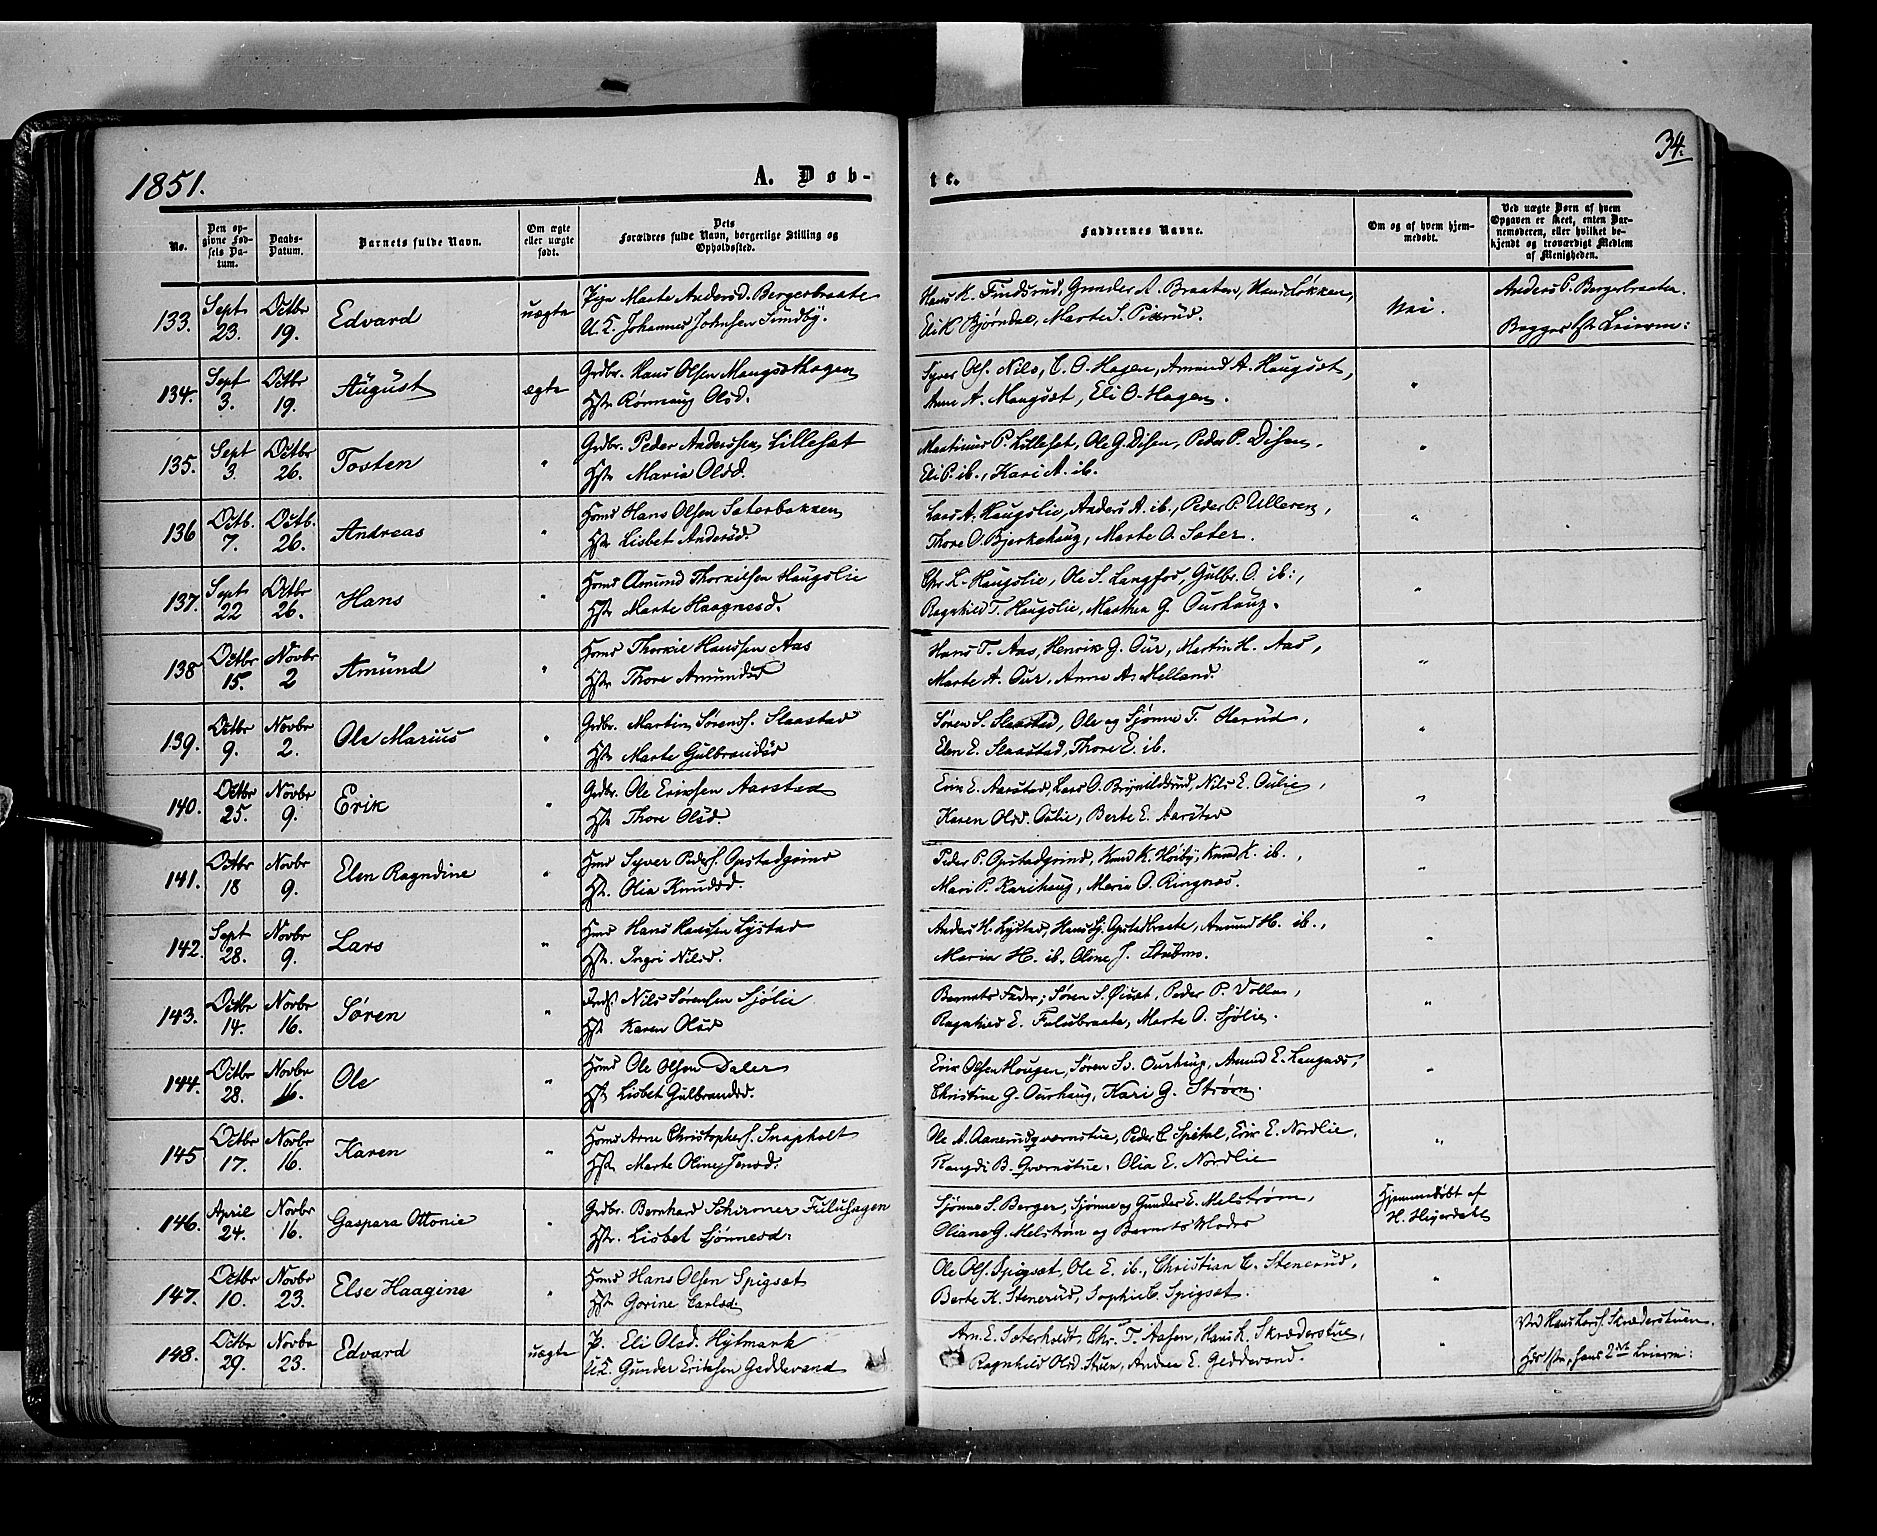 1851.
A. Døb-
te.
34.
No.
Den op-
givne Fød-
sels Da-
tum.
Daabs-
Datum.
Barnets fulde Navn.
Om ægte
eller uægte
født.
Dets
Forældres fulde Navn, borgerlige Stilling og
Opholdssted.
Faddernes Navne.
Om og af hvem hjem-
medøbt.
Ved uægte Børn af hvem
Opgaven er skeet, enten Bar-
nemoderen, eller hvilket be-
kjendt og troværdigt Medlem
af Menigheden.
133. Sept 23. Octbr 19. Edvard uægte Pige Marte Andersd. Bergerbraate
U.K. Johannes Johnsen Sundby.
Hans K. Findsrud, Gunder A. Braaten, Hans Løkken,
Eli K Bjørndal, Marte S. Pixrud.
Nei.
Anders P. Bergerbraaten.
Begges 1ste Leierm:
134. Sept 3. Octbr 19. August ægte Grdbr. Hans Olsen Maugsethagen
Hstr. Rønnaug Olsd.
Syver Ols. Nilo, C. O. Hagen, Amund A. Haugset,
Anne A. Maugset, Eli O. Hagen.
"
135. Sept 3. Octbr 26. Tosten " Grdbr. Peder Anderssen Lilleset
Hstr Maria Olsd.
Martinus P. Lilleset, Ole G. Disen, Peder P. Disen,
Eli P. ib., Kari A. ib.
"
136 Octb. 7. Octb. 26. Andreas " Hsmd Hans Olsen Saterbakken
Hstr Lisbet Andersd.
Lars A. Haugslie, Anders A. ib., Peder P. Ulleren,
Thore O. Bjerkehaug, Marte O. Sater.
"
137. Sept 22 Octbr 26. Hans " Hsmd Amund Thorkilsen Haugslie
Hstr Marte Haagensd.
Chr. L. Haugslie, Ole S. Langfos, Gulbr. O. ib:,
Ragnhild T. Haugslie, Marthea G. Ourhaug.
"
138 Octbr 15. Novbr 2 Amund " Hsmd Thorkil Hanssen Aas
Hstr Thore Amundsd
Hans T. Aas, Henrik G. Our, Martin H. Aas,
Marte A. Our, Anne A. Melland.
"
139. Octbr 9. Novbr 2. Ole Marius " Grdbr. Martin Sørens. Slaastad
Hstr Marte Gulbrandsd
Søren S. Slaastad, Ole og Sjønne T. Herud,
Elen E. Slaastad, Thore E. ib.
"
140. Octbr 25. Novbr 9. Erik " Grdbr. Ole Eriksen Aarstad
Hstr Thore Olsd.
Erik E. Aarstad, Lars O. Brynildsrud, Nils E. Oulie,
Karen Olsd. Oulie, Berte E. Aarstad
"
141. Octbr 18 Novbr 9. Elen Ragndine " Hsmd Syver Peders. Opstadgrind
Hstr. Olia Knudsd.
Peder P. Opstadgrind, Knud K. Høiby, Knud K. ib.,
Mari P. Karihaug, Maria O. Ringnæs.
"
142. Sept 28. Novbr 9. Lars " Hsmd Hans Hanssen Lystad
Hstr. Ingri Nilsd.
Anders H. Lystad, Hans G. Opstadbraate, Amund H. ib.,
Maria H. ib. Oline J. Stubmo.
"
143. Octbr 14. Novbr 16. Søren " Indst Nils Sørensen Sjølie
Hstr Karen Olsd
Barnets Fader; Søren S. Øiset, Peder P. Volla,
Ragnhild E. Fulubraate, Marte O. Sjølie.
"
144. Octbr 28. Novbr 16. Ole " Hsmd Ole Olsen Daler
Hstr Lisbet Gulbrandsd.
Erik Olsen Hougen, Søren Sv. Ourhaug, Amund E. Haugaas,
Christine G. Ourhaug, Kari G. Strøm.
"
145 Octbr 17. Novbr 16. Karen " Hsmd Arne Christophers. Snapholt
Hstr Marte Oline Jensd.
Ole A. Aanerudqværnstue, Peder C Spital, Erik E. Nordlie,
Rangdi B. Qværnstue, Olia E. Nordlie
"
146. April 24. Novbr 16. Gaspara Ottonie " Grdbr. Bernhard Schirmer Fuluhagen
Hstr. Lisbet Sjønnesd:
Sjønne S. Berger, Sjønne og Gunder E. Melstrøm,
Oliane G. Melstrøm og Barnets Moder
Hjemmedøbt af
H. Heyerdahl
147. Octbr 10. Novbr 23. Else Haagine " Hsmd Hans Olsen Spigset
Hstr Gorine Carlsd.
Ole Ols. Spigset, Ole E. ib., Christian C. Stenerud,
Berte K. Stenerud, Sophie C. Spigset.
"
148. Octbr 29. Novbr 23. Edvard uægte P. Eli Olsd. Hytmark
U.K. Gunder Eriksen Geddevand
Arn. E. Soterholdt, Chr. T. Aasen, Hans L. Skræderstue,
Ragnhild Olsd. Stuen, Andrea E. Geddevand.
"
Ved Hans Lars. Skræderstuen.
Hds 1ste, hans 2det Leierm: